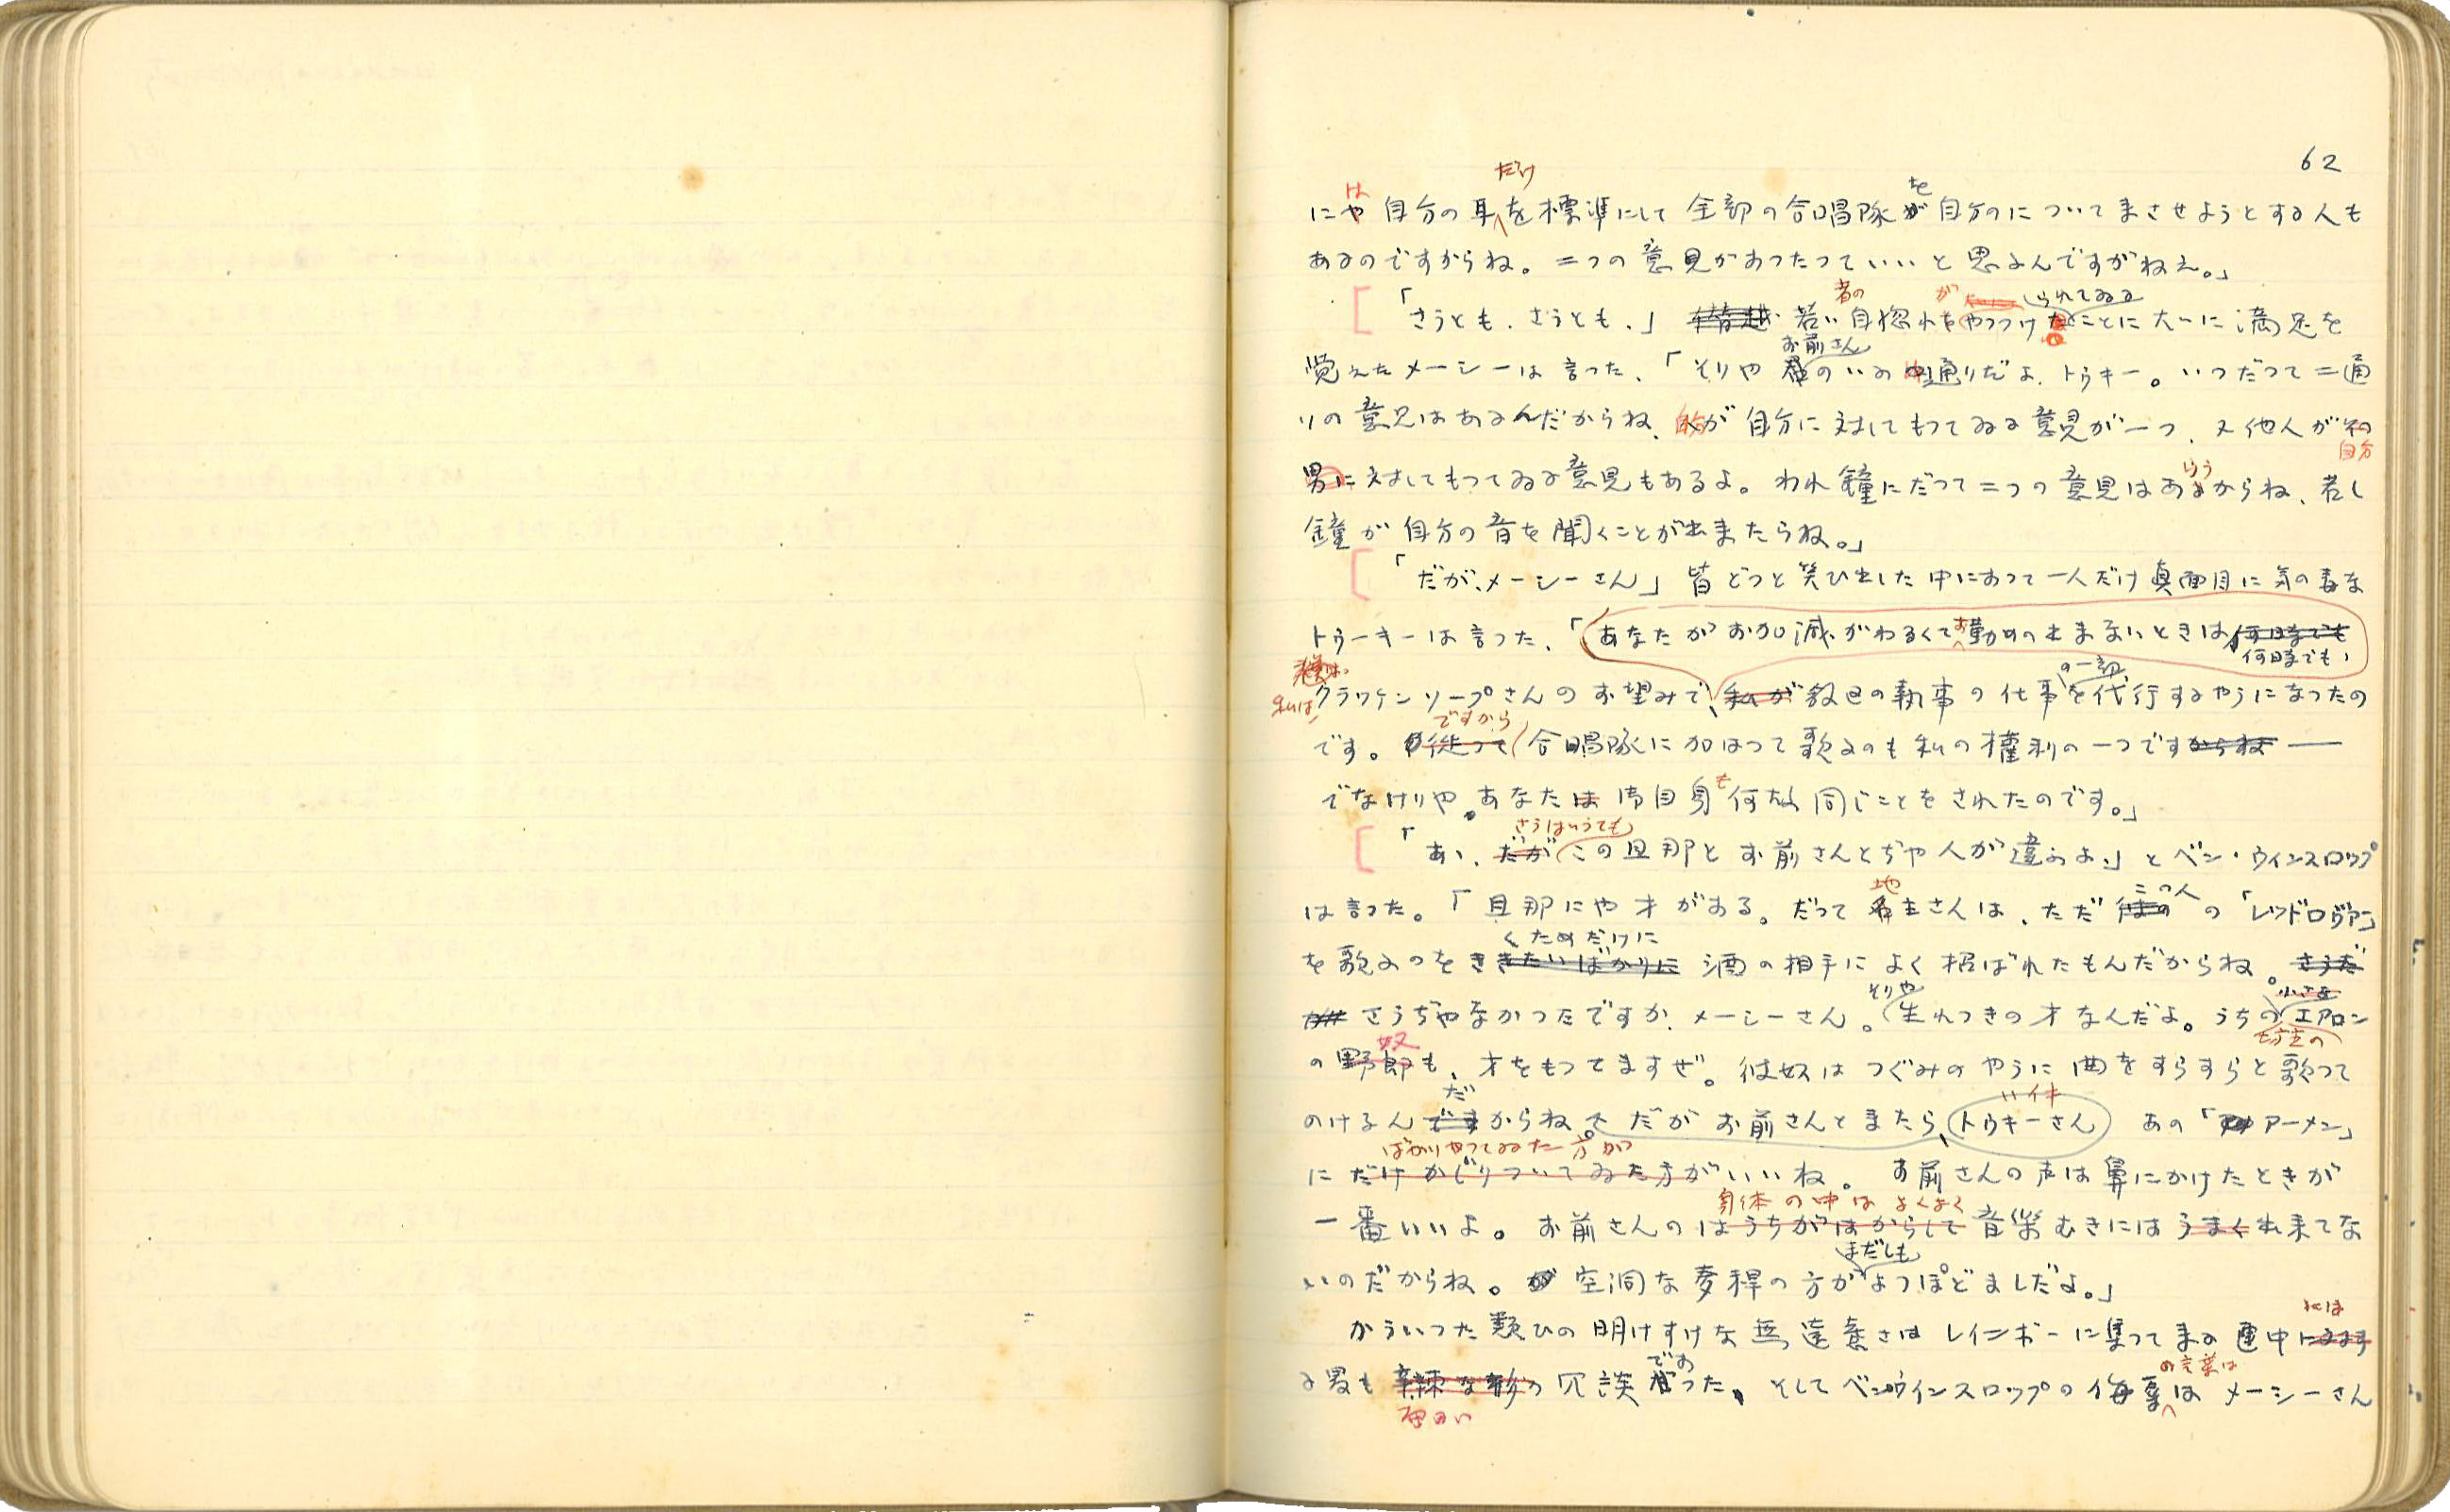 62
だけ
は を
にや 自分の耳を標準にして 全部の合唱隊が自分のについてこさせようとする人も
あるのですからね。二つの意見があつたつていいと思ふんですがねえ。」
者の が られてゐる
「さうとも、さうとも、」 若い自惚れをやつつけたことに大いに満足を
お前さん
覚えたメーシーは言つた、「そりや君のいふ通りだよ、トゥキー。いつだつて二通
りの意見はあるんだからね、が自分に対してもつてゐる意見が一つ、又他人がその
自分
男に対してもつてゐる意見もあるよ。われ鐘にだつて二つの意見はあるからね、若し
らう
鐘が自分の音を聞くことが出来たらね。」
「だが、メーシーさん」皆どつと笑ひ出した中にあつて一人だけ真面目に気の毒な
トゥーキーは言つた、「あなたがお加減がわるくてお勤めの出来ないときは何時でも
何時でも、
の一部
私は クラッケンソープさんのお望みで、私が教区の執事の仕事を代行するやうになつたの
ですから
です。従つて合唱隊に加はつて歌ふのも私の権利の一つですからね——
も
でなけりや、あなたは御自身何故同じことをされたのです。」
さうはいうても
「あゝ、だがこの旦那とお前さんとぢや人が違ふよ、」とベン・ウインスロップ
地 この人
は言つた。「旦那にや才がある。だつて名主さんは、ただ彼の の「レッドロヴァー」
くためだけに
を歌ふのをききたいばかりに 酒の相手によく招ばれたもんだからね。さうだ
そりや 小さな
が さうぢやなかつたですか、メーシーさん。生れつきの才なんだよ。うちのエアロン
奴 坊主の
の野郎も、才をもつてますぜ。彼奴はつぐみのやうに曲をすらすらと歌つて
だ
のけるんですからね。だがお前さんときたら、トゥキーさん あの「アーメン」
ばかりやつてゐた方が
にだけかじりついてゐた方がいいね。お前さんの声は鼻にかけたときが
身体の中は よくよく
一番いいよ。お前さんのはうちがはからして音楽むきにはうまく出来てな
まだしも
いのだからね。空洞な麦稈の方がよつぽどましだよ。」
には
かういつた類ひの明けすけな無遠慮さはレインボーに集つて来る連中に
であ の言葉は
る最も辛辣な形の冗談だつた、そしてベンウインスロップの侮辱はメーシーさん
面白い